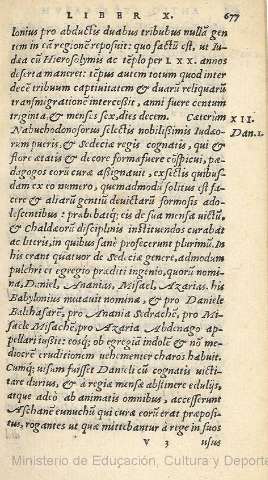 LIBER X. 677
lonius pro abductis duabus tribubus nullã gen
tem in eã regionẽ reposuit: quo factũ est, ut Iu
dæa cũ Hierosolymis ac tẽplo per LXX. annos
deserta maneret: tẽpus autem totum quod inter
decẽ tribuum captiuitatem & duarũ reliquarũ
transmigrationẽ intercessit, anni fuere centum
triginta, & menses sex, dies decem. Cæterum XII.
Nabuchodonosorus selectis nobilißimis Iudæo- Dan.1.
rum pueris, & Sedeciæ regis cognatis, qui &
flore ætatis & decore formæ fuere cõspicui, pæ-
dagogos eorũ curæ aßignauit, exsectis quibus-
dam ex eo numero, quemadmodũ solitus est fa-
cere & aliarũ gentiũ deuictarũ formosis ado-
lescentibus: præbebatq́; eis de sua mensa uictũ,
& chaldæorũ disciplinis instituendos curabat
ac literis, in quibus sanè profecerunt plurimũ. In
his erant quatuor de Sedeciæ genere, admodum
pulchri et egregio præditi ingenio, quorũ nomi
na, Daniel, Ananias, Misael, Azarias. his
Babylonius mutauit nomina, & pro Daniele
Balthasarẽ, pro Anania Sedrachẽ, pro Mi
saele Misachẽ, pro Azaria Abdenago ap-
pellari iußit: eosq́; ob egregiã indolẽ & nõ me
diocrẽ eruditionem uehementer charos habuit.
Cumq́; uisum fuisset Danieli cũ cognatis uicti-
tare durius, & à regia mensa abstinere edulijs,
atque adeò ab animatis omnibus, accesserunt
Aschanẽ eunuchũ qui curæ eorũ erat præposi-
tus, rogantes ut quæ mittebantur à rege in suos
V 3 usus
Ministerio de Educación, Cultura y Deporte